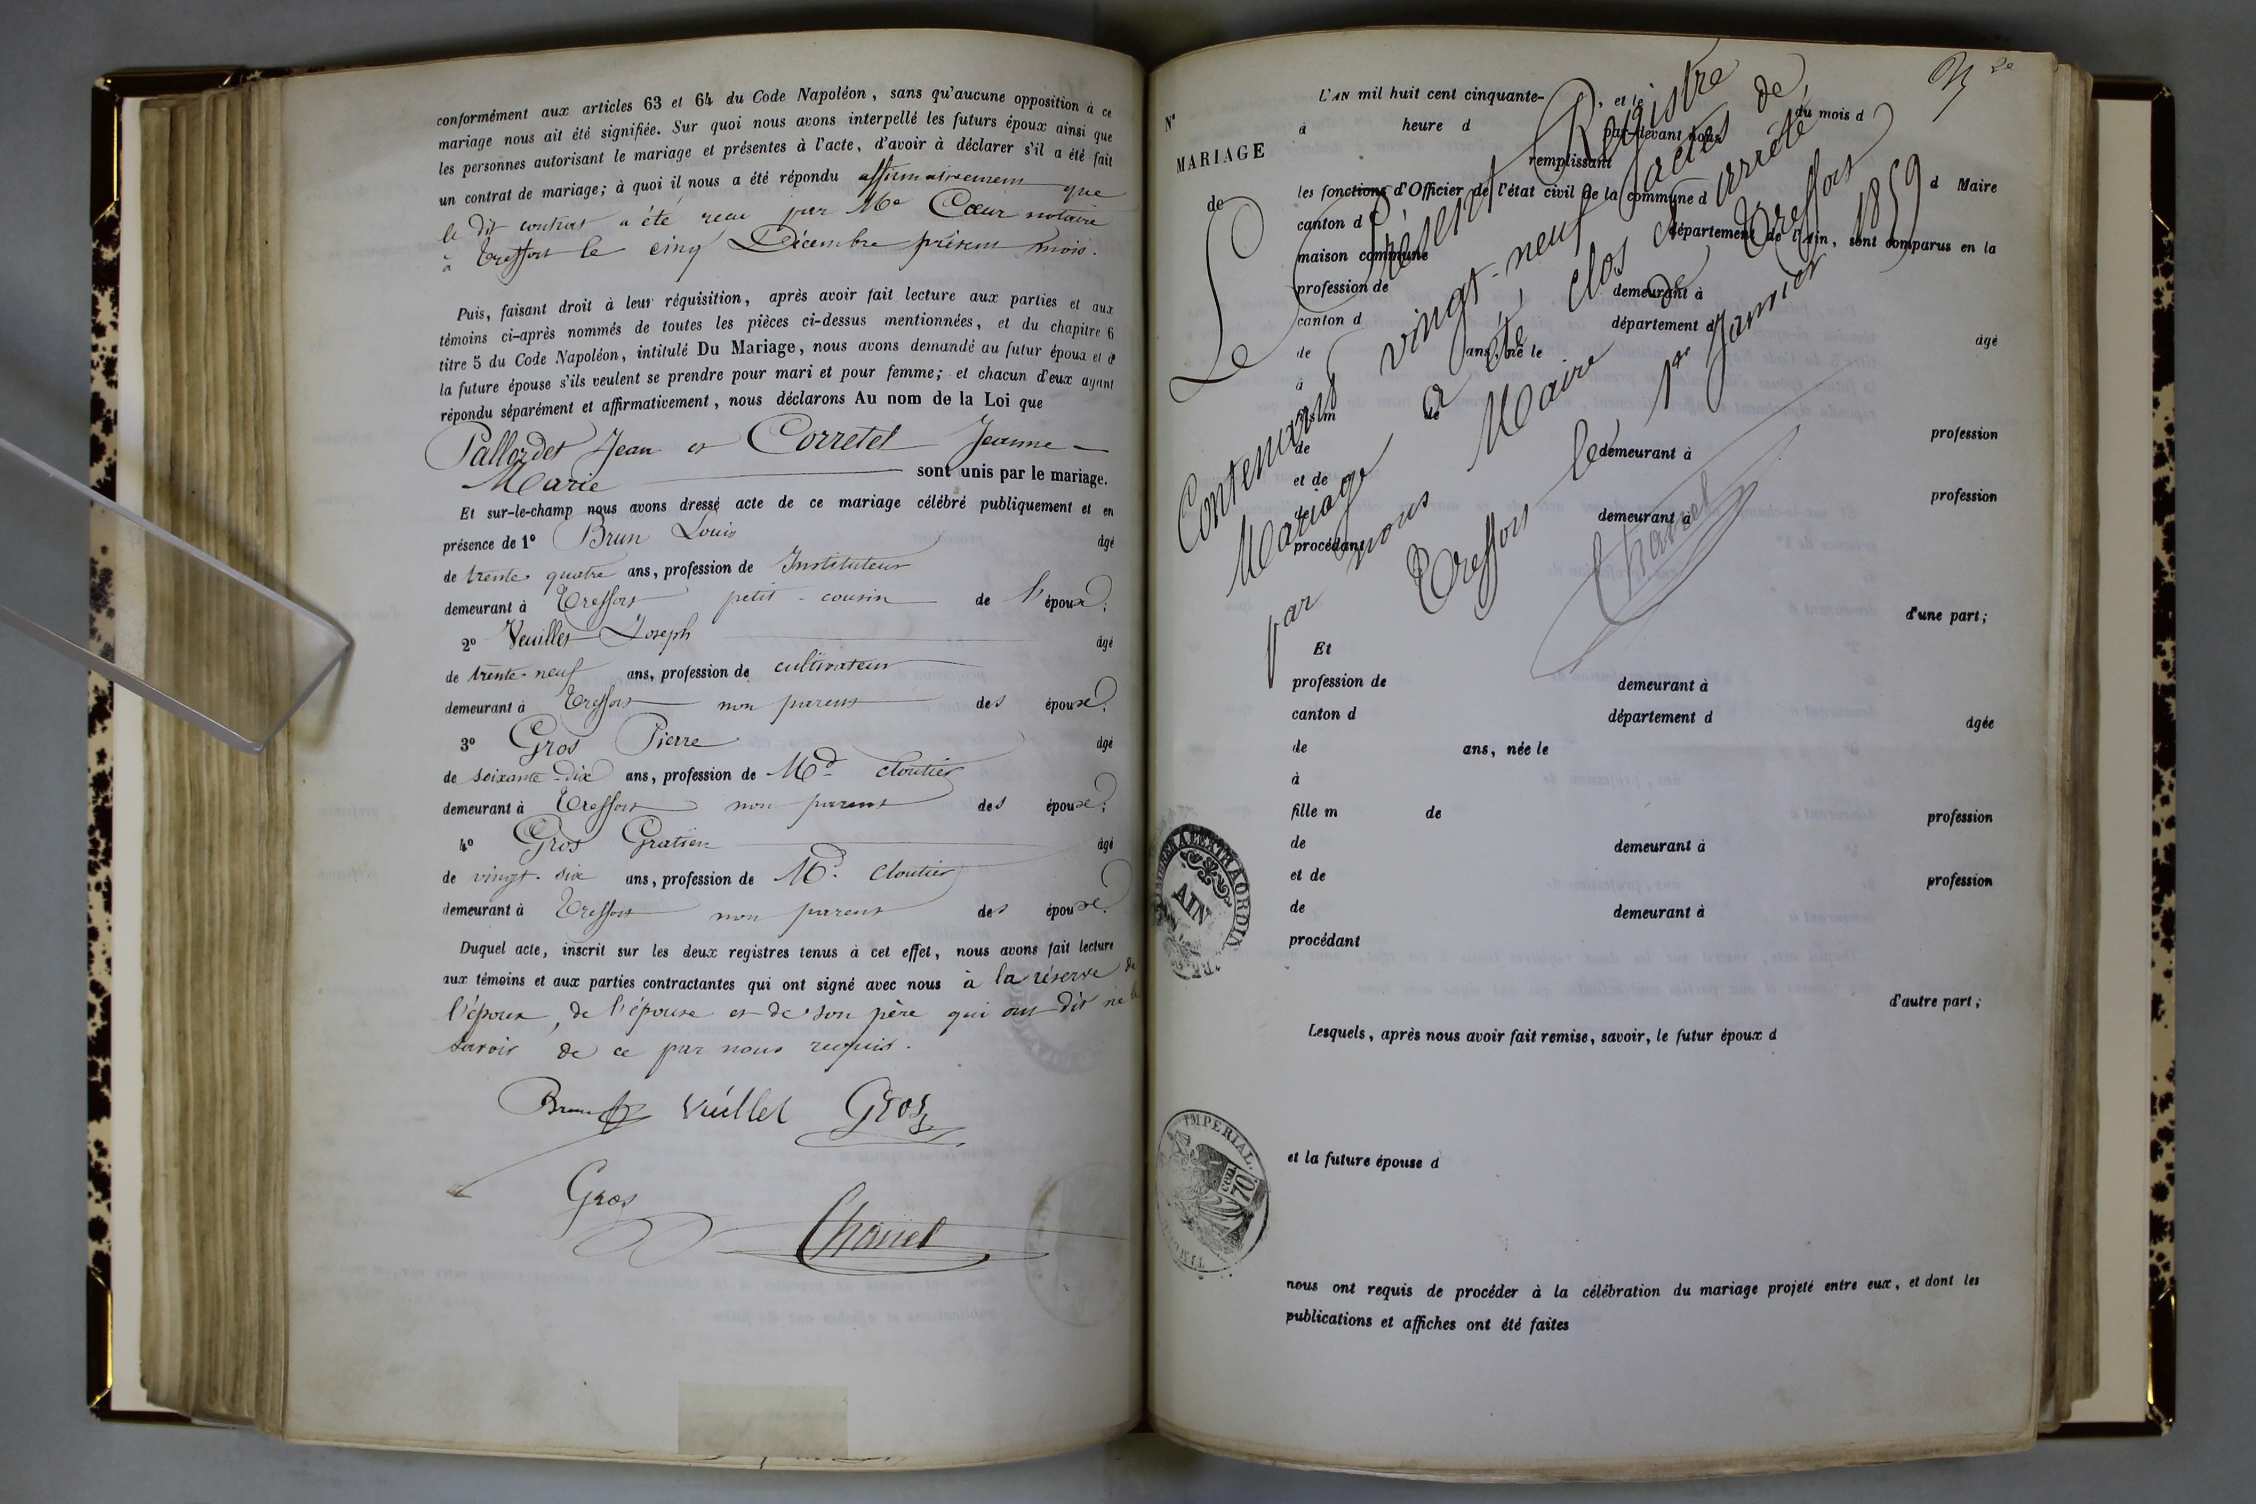 conformément aux articles 63 et 64 du Code Napoléon, sans qu'aucune opposition à ce
mariage nous ait été signifiée. Sur quoi nous avons interpellé les futurs époux ainsi que
les personnes autorisant le mariage et présentes à l'acte, d'avoir à déclarer s'il a été fait
un contrat de mariage; à quoi il nous a été répondu affirmativement que
le dit contrat a été recu par Me Cœur notaire
à Treffort le cinq Décembre présent mois.
Puis, faisant droit à leur réquisition, après avoir fait lecture aux parties et aux
témoins ci-après nommés de toutes les pièces ci-dessus mentionnées, et du chapitre 6
titre 5 du Code Napoléon, intitulé Du Mariage, nous avons demandé au futur époux et à
la future épouse s'ils veulent se prendre pour mari et pour femme; et chacun d'eux ayant
répondu séparément et affirmativement, nous déclarons Au nom de la Loi que
Pallordet Jean et Corretel Jeanne
Marie sont unis par le mariage.
Et sur-le-champ nous avons dressé acte de ce mariage célébré publiquement et en
présence de 1° Brun Louis âgé
de trente quatre ans, profession de Instituteur
demeurant à Treffort petit-cousin de l'époux;
2° Veuillet Joseph âgé
de trente-neuf ans, profession de cultivateur
demeurant à Treffort non parent des époux;
3° Gros Pierre âgé
de soixante-dix ans, profession de Md cloutier
demeurant à Treffort non parent des époux;
4° Gros Gratien âgé
de vingt-six ans, profession de Md cloutier
demeurant à Treffort non parent des époux.
Duquel acte, inscrit sur les deux registres tenus à cet effet, nous avons fait lecture
aux témoins et aux parties contractantes qui ont signé avec nous à la réserve de
l'époux, de l'épouse et de son père qui ont dit ne le
savoir de ce par nous requis.
Brun Vuillet Gros
Gros
Chanel
2e
N°
MARIAGE
de
L'AN mil huit cent cinquante- , et le du mois d
à heure d par-devant nous
remplissant
les fonctions d'Officier de l'état civil de la commune d d Maire
canton d département de l'Ain, sont comparus en la
maison commune
profession de demeurant à
canton d département d âgé
de ans, né le
à
fils m de profession
de demeurant à
et de profession
de demeurant à
procédant
d'une part;
Et
profession de demeurant à
canton d département d âgée
de ans, née le
à
fille m de profession
de demeurant à
et de profession
de demeurant à
procédant
d'autre part;
Lesquels, après nous avoir fait remise, savoir, le futur époux d
et la future épouse d
nous ont requis de procéder à la célébration du mariage projeté entre eux, et dont les
publications et affiches ont été faites
Le Présent Registre
Contenant vingt-neuf actes de
Mariage a été clos et arrêté
par nous Maire de Treffort
Treffort le 1er Janvier 1859
Chanel
AIN
IMPERIAL
70